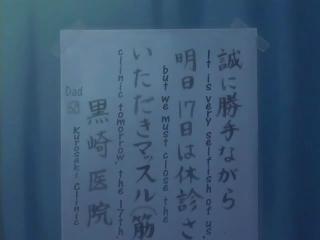 誠に勝手ながら
It is very selfish of us
明日17日は休診さ
but we must close the
いただきマッスル(筋
clinic tomorrow, the 17th.
黒崎医院
Kurosaki Clinic
Dad